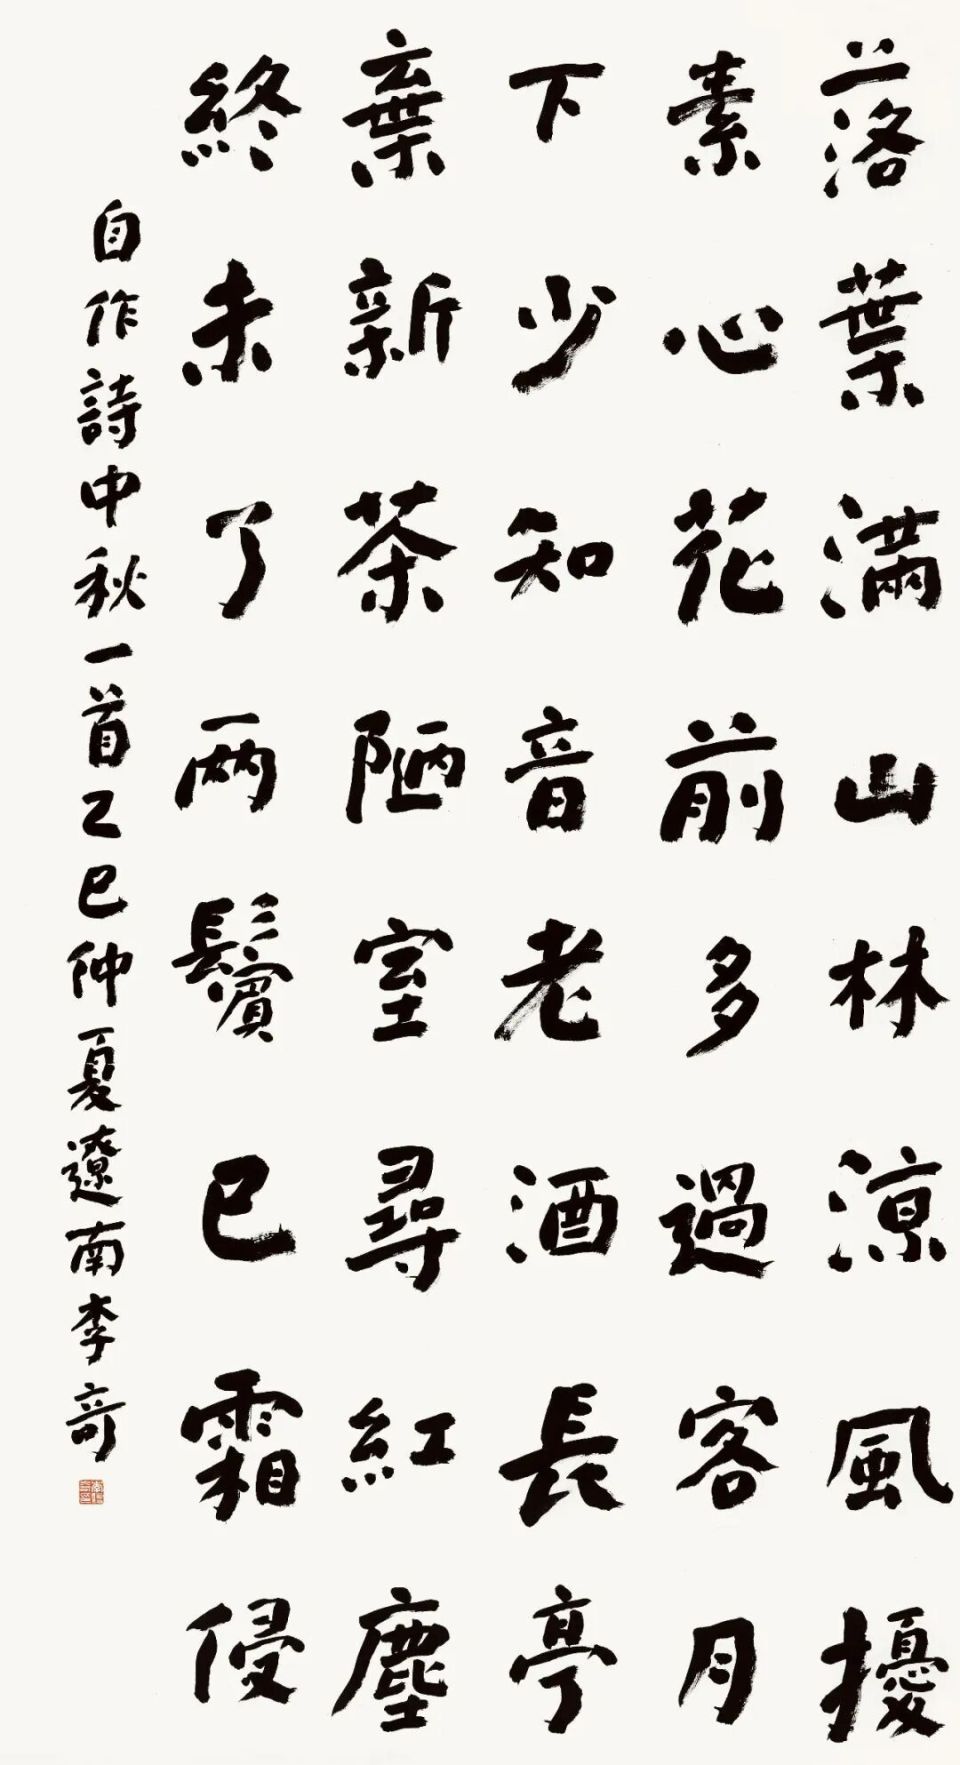 落葉滿山林涼風擾
素心花前多過客月
下少知音老酒長亭
棄新茶陋室尋紅塵
終未了兩鬢已霜侵
自作詩中秋一首乙巳仲夏遼南李奇